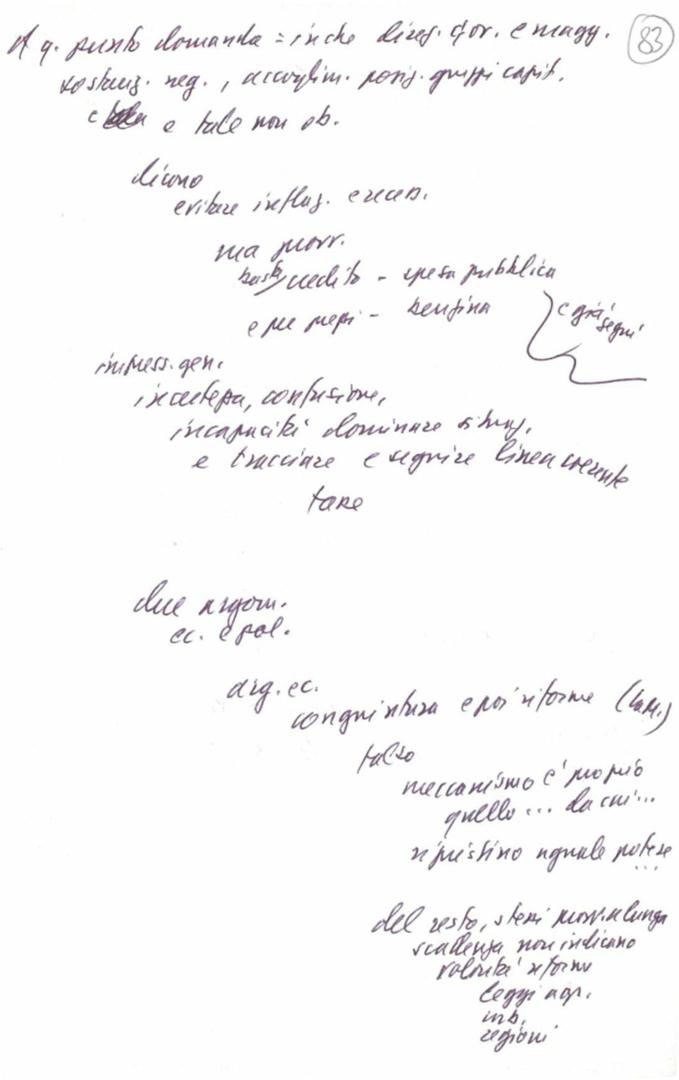 A q. punto domanda = in che direz. gov. e magg.
83
sostanz. neg., accoglim. posiz. gruppi capit.
e tale non ob.
dicono
evitare inflaz. e recess.
ma provv.
credito - spesa pubblica
e per prezzi - benzina
e già segni
impress. gen.
incertezza, confusione,
incapacità dominare situaz.
e tracciare e seguire linea coerente
due argom.
ec. e pol.
arg. ec.
congiuntura e poi riforme (LaM.)
falso
meccanismo è proprio
quello ... da cui ...
ripristino uguale potere
...
del resto, stessi provv. a lunga
scadenza non indicano
volontà riforme
leggi agr.
urb.
regioni